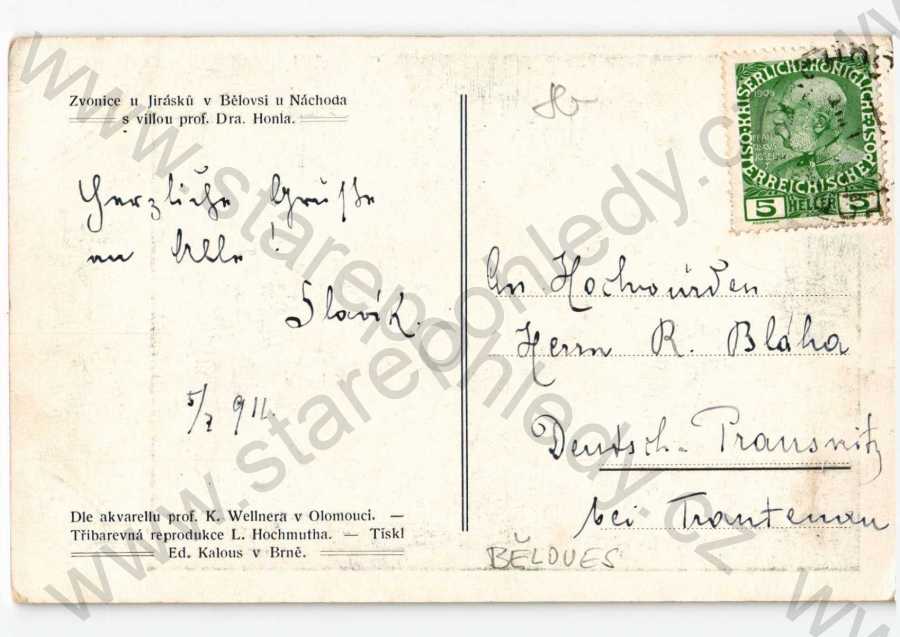 Zvonice u Jirásků v Bělovsi u Náchoda
s villou prof. Dra. Honla.
Herzliche Grüsse
an Alle!
Slavík.
5/7 911.
Dle akvarellu prof. K. Wellnera v Olomouci. —
Tříbarevná reprodukce L. Hochmutha. — Tiskl
Ed. Kalous v Brně.
KAISERLICHE KÖNIGLICHE
ÖSTERREICHISCHE POST
1908
FRANZ
JOSEPH I
5 HELLER 5
An Hochwürden
Herrn R. Bláha
Deutsch-Prausnitz
bei Trautenau
BĚLOVES
www.starepohledy.cz
www.starepohledy.cz
www.starepohledy.cz